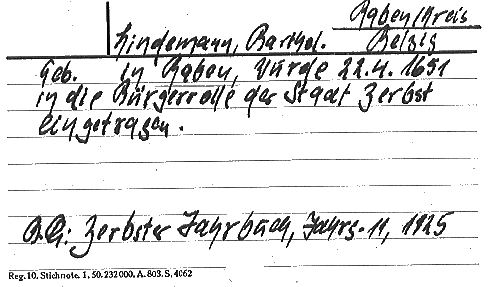 Raben/Kreis
Lindemann, Barthel. Belzig
Geb. in Raben, wurde 22.4. 1651
in die Bürgerrolle der Stadt Zerbst
eingetragen.
Q.: Zerbster Jahrbuch, Jahrg. 11, 1925
Reg. 10. Stichnote. 1, 50. 232000. A. 803. S. 4062